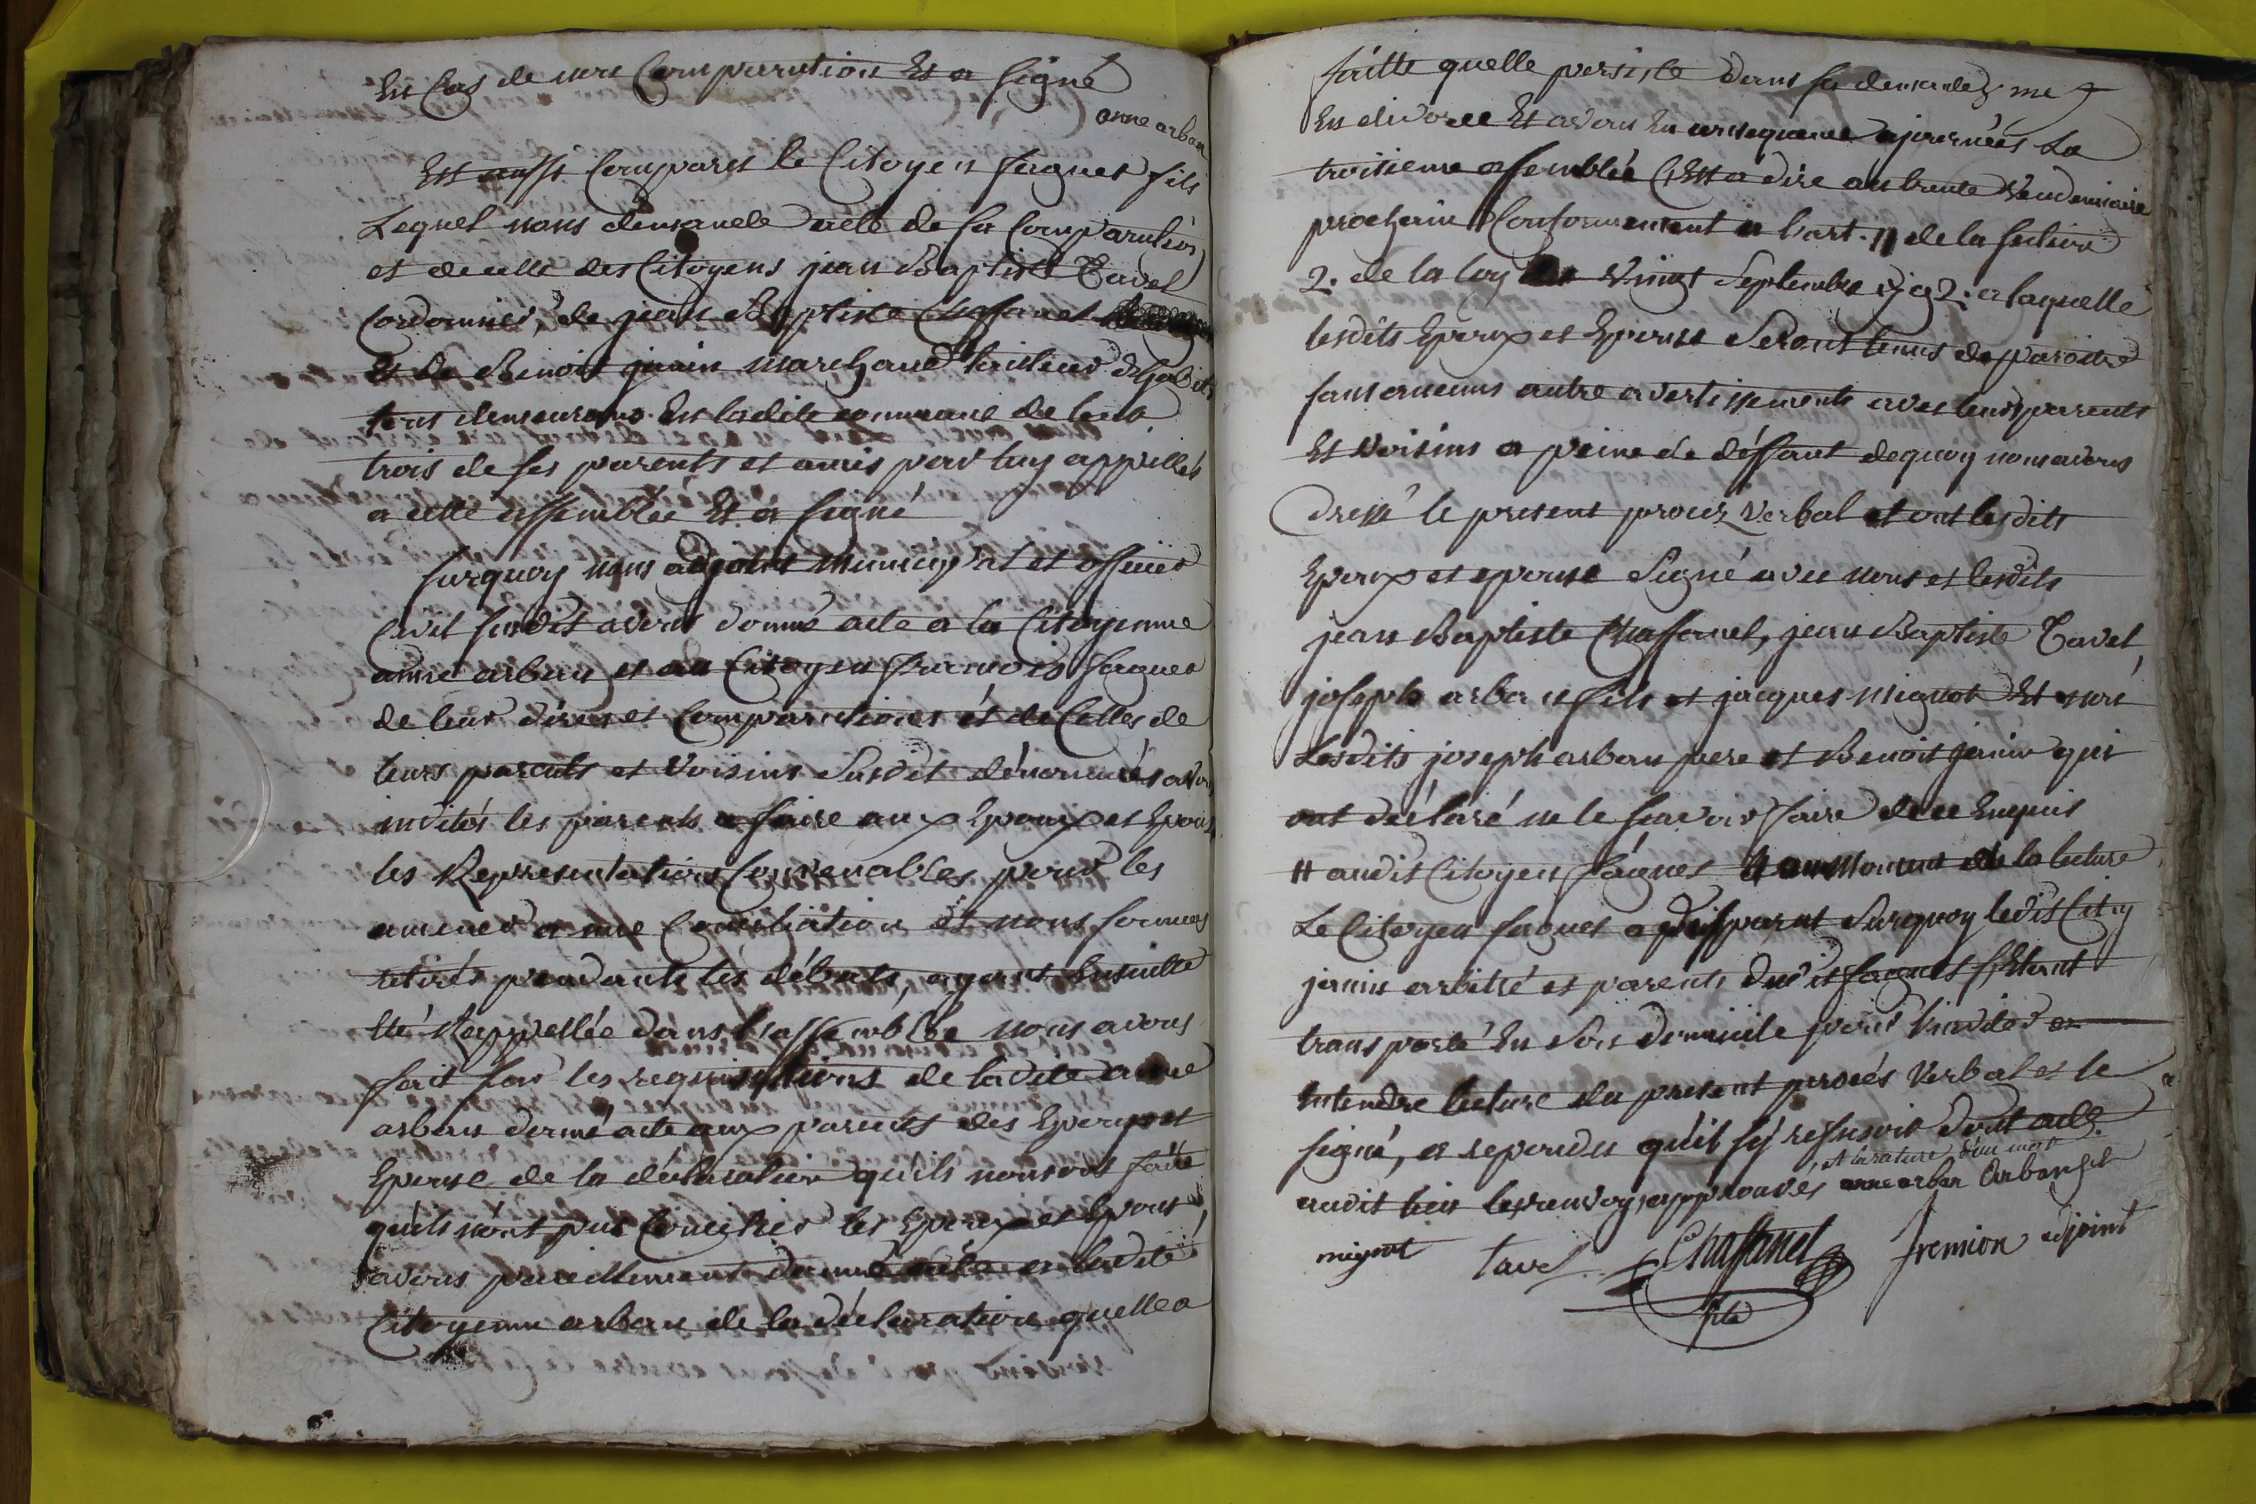 En Cas de non Comparution Et a signé
anne arban
Est aussi Comparu le Citoyen fagues fils
Lequel nous demande acte de sa Comparution
et de celle des Citoyens jean Baptiste Tavel
Cordonnier, de jean Baptiste Chaffanel
Et de Benoit janin marchand tailleur d'habits
tous demeurans En ladite commune de
trois de ses parents et amis par luy appellés
a cette assemblée Et a signé
surquoy nous adjoint municipal et officier
Civil susdit avons donné acte a la Citoyenne
anne arban et au Citoyen francois fagues
de leur dires et Comparutions et de Celles de
leurs parents et voisins Susdit dénommés avons
invités les parents a faire aux Epoux et Epouse
les Representations Convenables pour les
amener a une Conciliation et nous sommes
retirés pendants les débats, ayant Ensuitte
été Rappellée dans l'assemblée nous avons
fait sur les requisitions de ladite anne
arban donné acte aux parents des Epoux et
Epouse de la déclaration qu'ils nous ont faite
qu'ils n'ont pus Concilier les Epoux et Epouse,
avons pareillement donné acte a ladite
Citoyenne arban de la déclaration quelle a
faitte quelle persiste dans sa demande
En divorce Et avons En consequence ajournées La
troisieme assemblée C'Est a dire au trente Vendemiaire
prochain Conformement a l'art. 11 de la section
2. de la loy Vingt Septembre 1792. a laquelle
lesdits Epoux et Epouse Seront tenus de paroitre
sans aucuns autre avertissements avec leurs parents
Et voisins a peine de déffaut dequoy nous avons
Dressé le present procés Verbal et ont lesdits
Epoux et epouse Signé avec nous et lesdits
jean Baptiste Chaffanel, jean Baptiste Tavel,
joseph arban fils et jacques mignot Et non
Lesdits joseph arban pere et Benoit janin qui
ont déclaré ne le savoir faire de ce Enquis
# audit Citoyen fagues # au Moment de la lecture
Le Citoyen fagues a disparut Surquoy ledit City
janin arbitre et parents dudit fagues s'Etant
transporté En Son domicile pour l'inviter a
Entendre lecture du present procés Verbal et le
signé, a repondu qu'il s'y refusoit Dont acte
et la rature d'un mot
audit lieu les renvoys approuvés anne arban Arban fils
mignot tavel Chaffanel fremion adjoint
fils